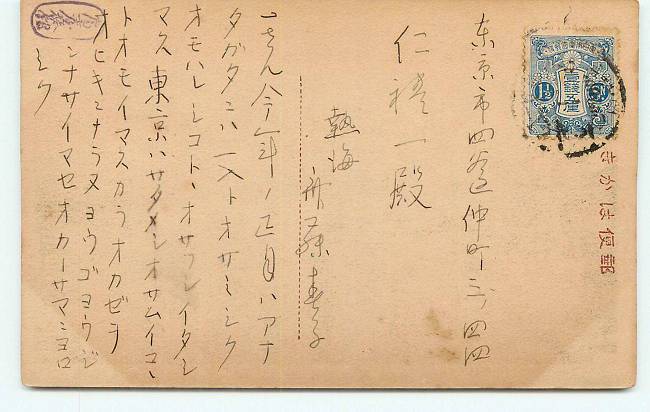 きかは便郵
1½
東京市四谷仲町三ノ四四
仁禮一殿
熱海
春子
一さん今年ノ正月ハアナ
タガタニハ一入トオサミシク
オモハレシコトヽオサツシイタシ
マス東京ハサダメシオサムイコト
トオモイマスカラオカゼヲ
オヒキニナラヌヨウゴヨウジ
ンナサイマセオカーサマニヨロ
シク